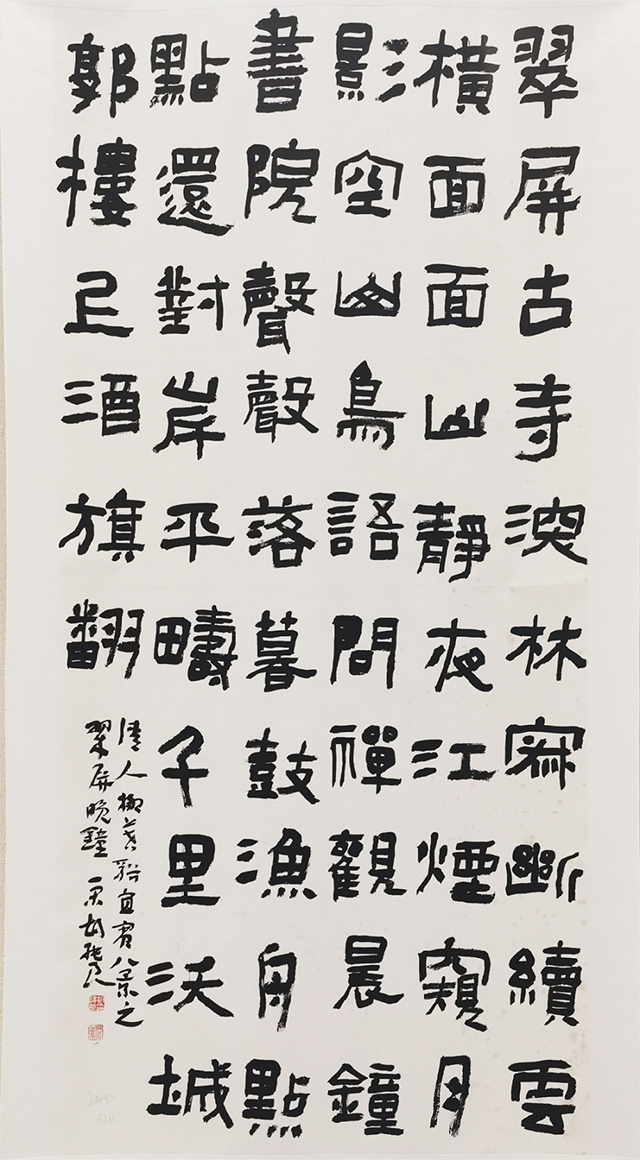 翠屏古寺深林寂斷續雲
橫面面山靜夜江煙窺月
影空山鳥語問禪觀晨鐘
書院聲聲落暮鼓漁舟點
點還對岸平疇千里沃城
郭樓上酒旗翻
清人柳谿宜賓八景之
翠屏晚鐘